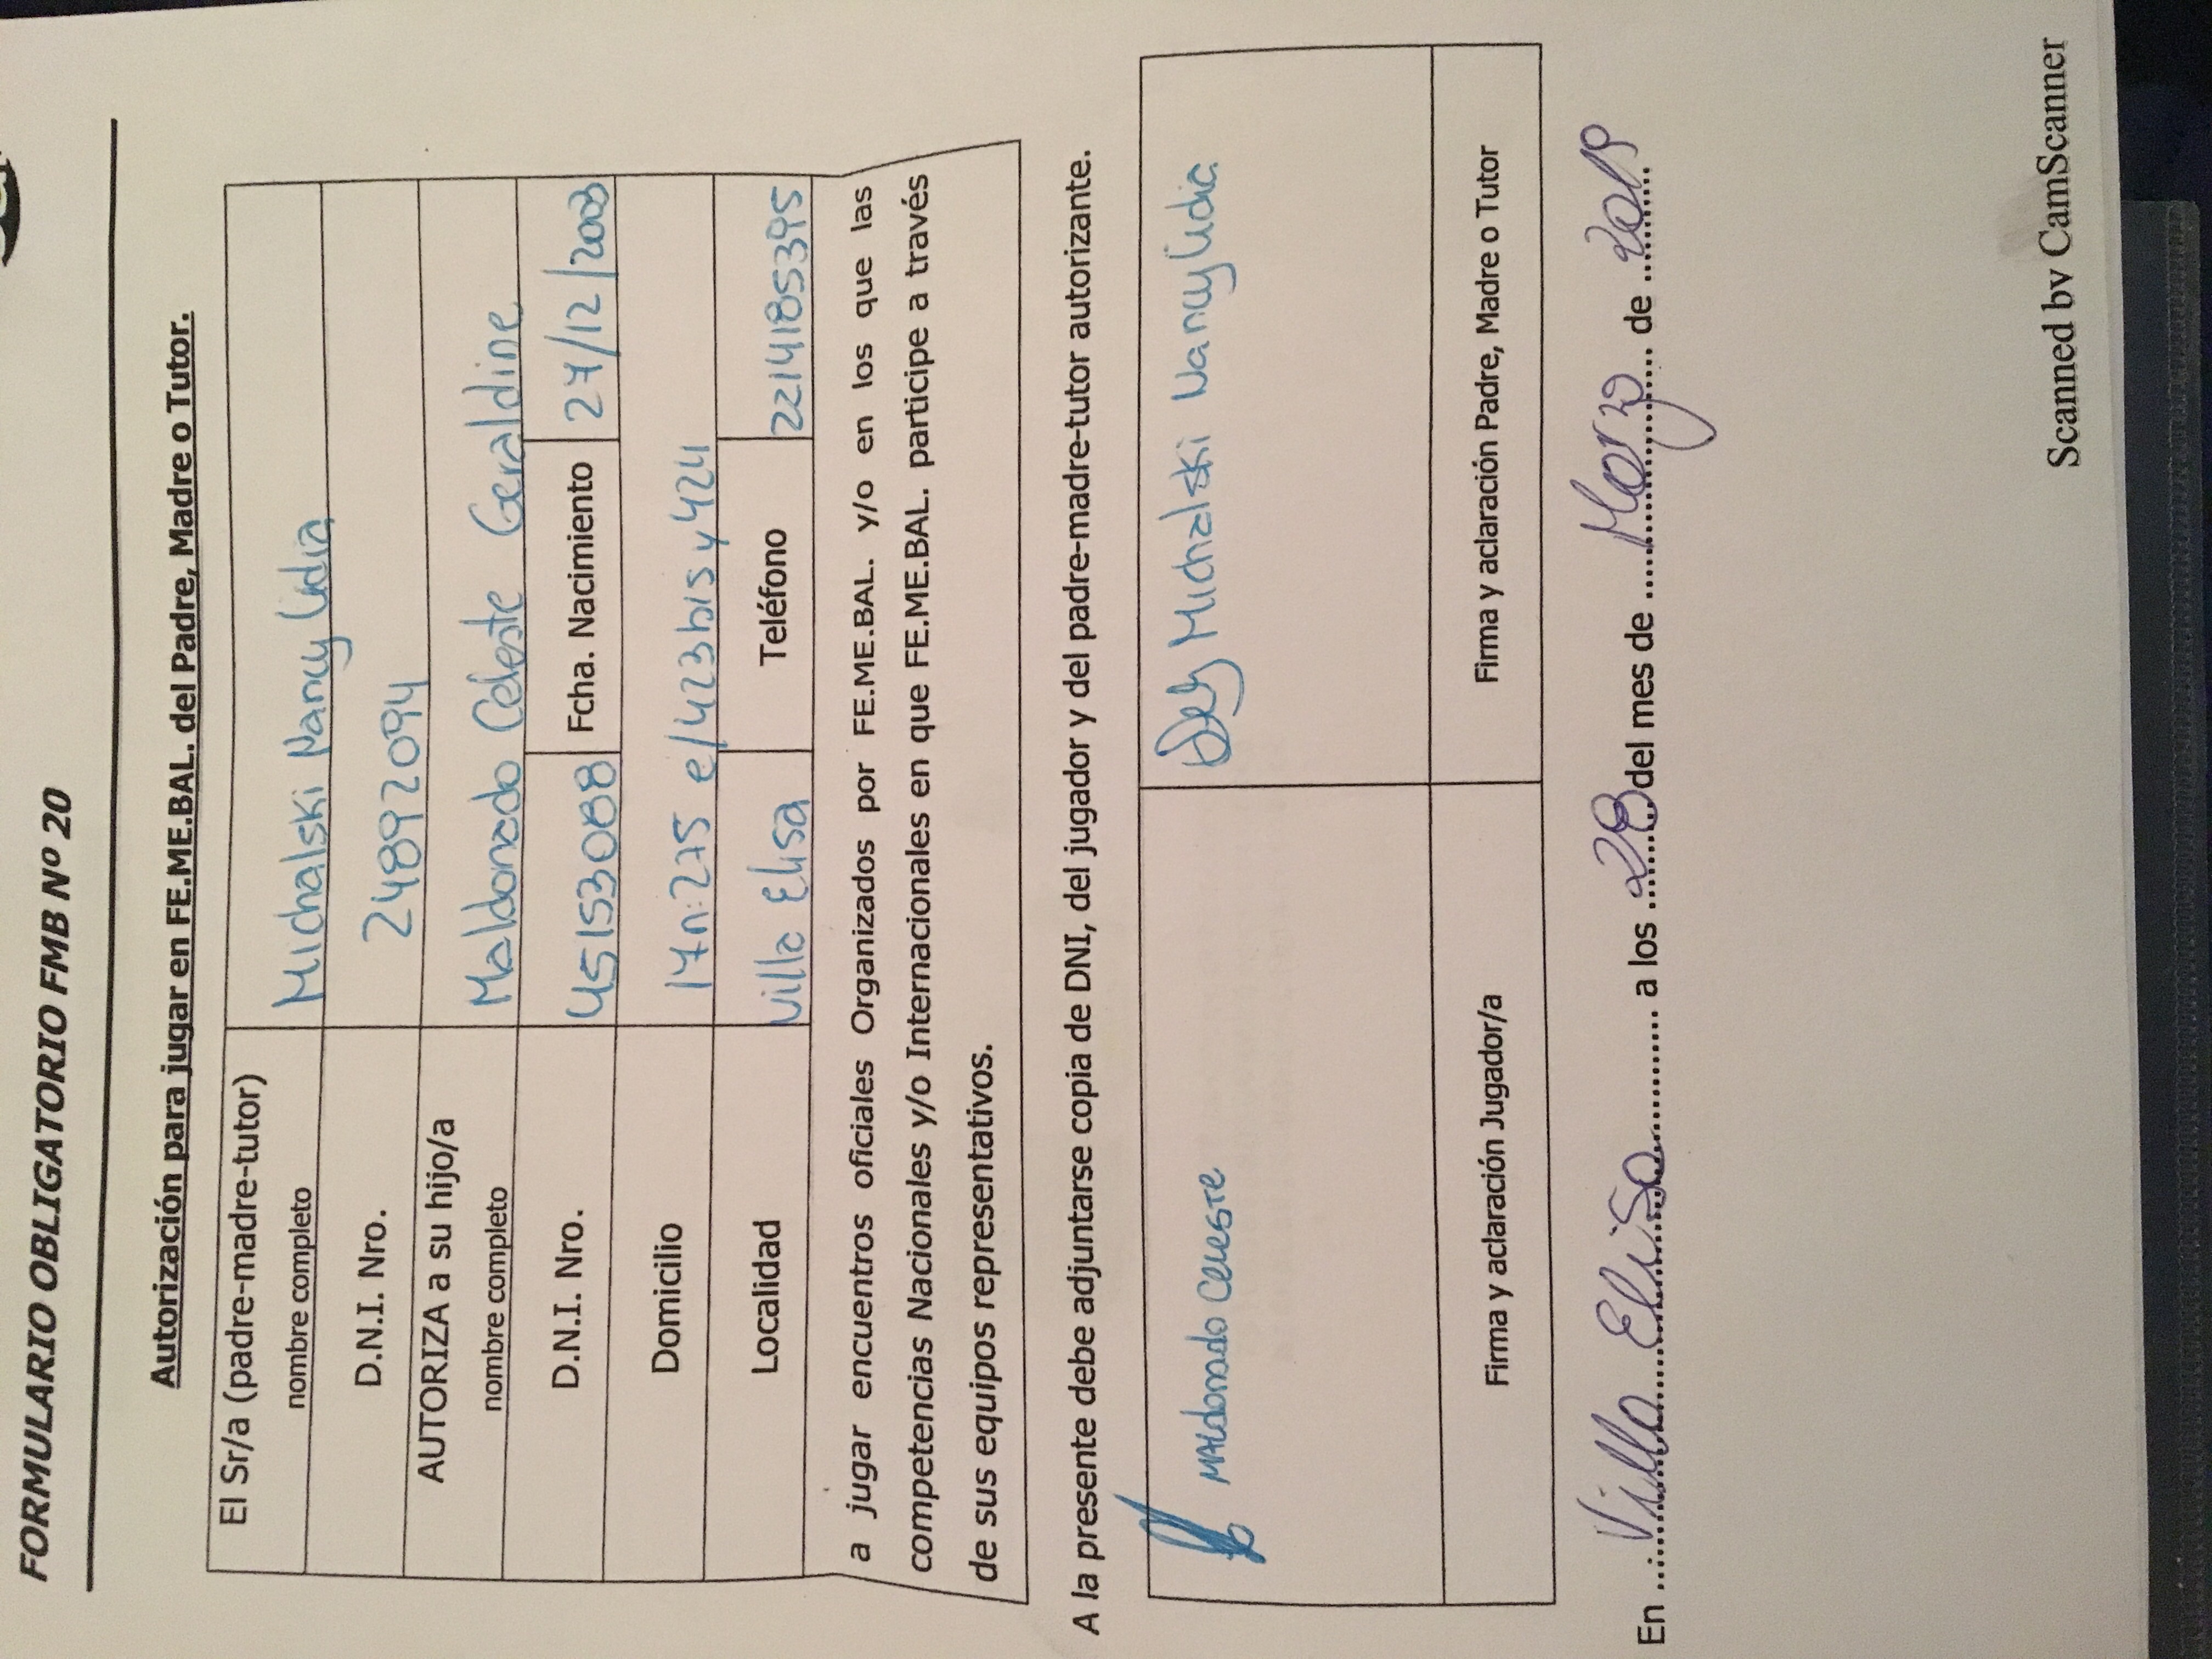 FORMULARIO OBLIGATORIO FMB Nº 20
Autorización para jugar en FE.ME.BAL. del Padre, Madre o Tutor.
El Sr/a (padre-madre-tutor)
nombre completo
Michalski Nancy Lidia
D.N.I. Nro.
24892094
AUTORIZA a su hijo/a
nombre completo
Maldonado Celeste Geraldine
D.N.I. Nro. 45153088 Fcha. Nacimiento 27/12/2003
Domicilio 17 n:275 e/423bis y 424
Localidad Villa Elisa Teléfono 2214185395
a jugar encuentros oficiales Organizados por FE.ME.BAL. y/o en los que las
competencias Nacionales y/o Internacionales en que FE.ME.BAL. participe a través
de sus equipos representativos.
A la presente debe adjuntarse copia de DNI, del jugador y del padre-madre-tutor autorizante.
MALdonado CeleSTe Michalski Nancy Lidia.
Firma y aclaración Jugador/a Firma y aclaración Padre, Madre o Tutor
En ...Villa Elisa............ a los ...28...del mes de ...Marzo... de ...2019...
Scanned by CamScanner